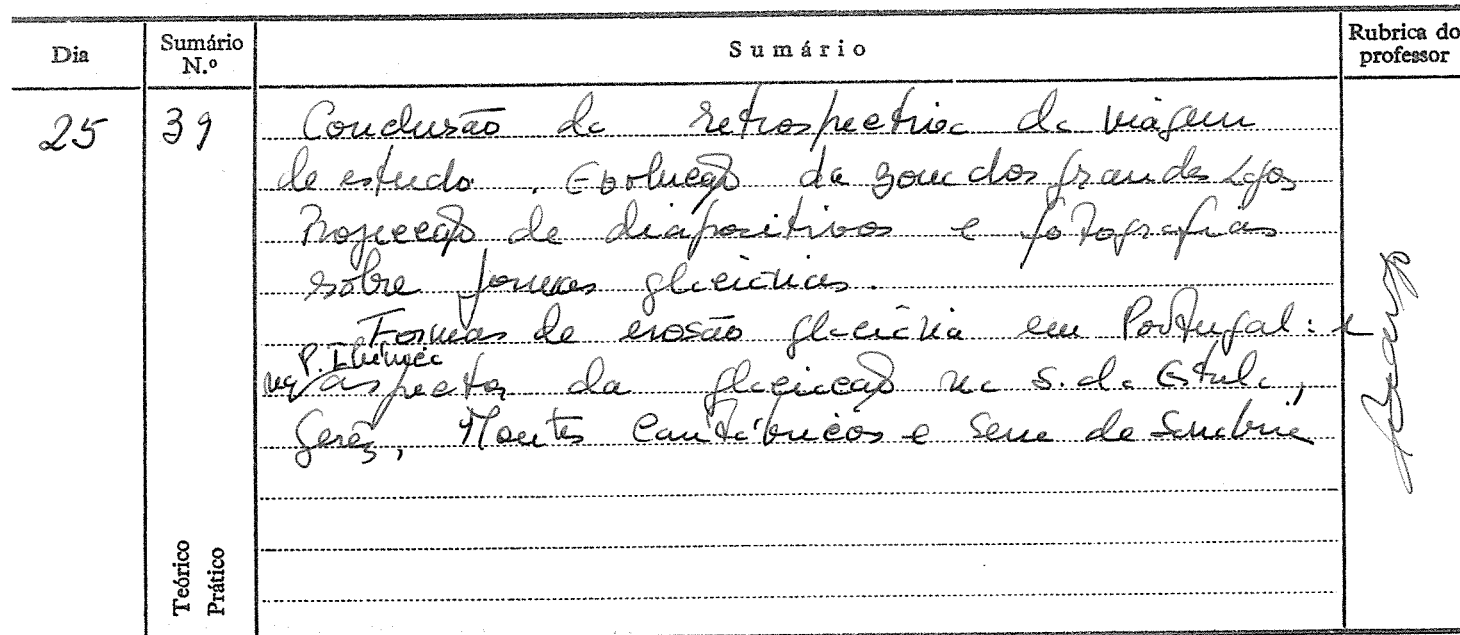 Dia
Sumário N.º
Sumário
Rubrica do professor
25
39
Conclusão da retrospectiva da viagem
de estudo. Evolução da zona dos grandes Lagos
Projecção de diapositivos e fotografias
sobre formas glaciárias.
Formas de erosão glaciária em Portugal: e
na P. Ibérica
aspectos da glaciação na S. da Estrela,
Gerês, Montes Cantábricos e Serra de Sanábria
Teórico
Prático